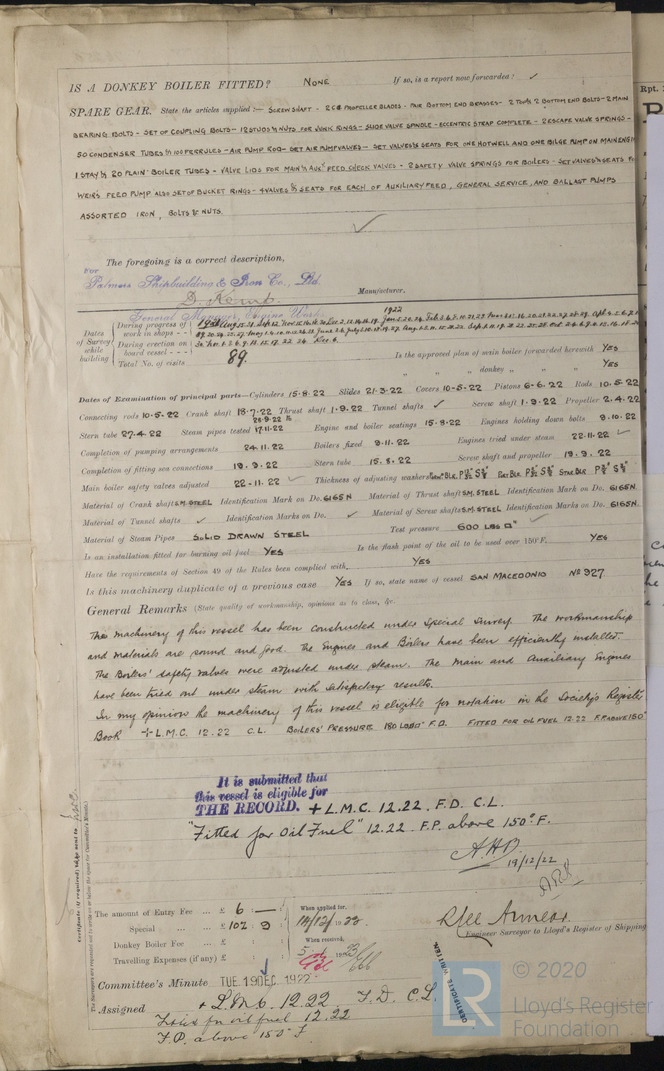 IS A DONKEY BOILER FITTED? NONE If so, is a report now forwarded? ✓
SPARE GEAR. State the articles supplied:— SCREW SHAFT - 2 CS PROPELLER BLADES - PAIR BOTTOM END BRASSES - 2 TOP & 2 BOTTOM END BOLTS - 2 MAIN
BEARING BOLTS - SET OF COUPLING BOLTS - 12 STUDS & NUTS FOR JUNK RINGS - SLIDE VALVE SPINDLE - ECCENTRIC STRAP COMPLETE - 2 ESCAPE VALVE SPRINGS -
50 CONDENSER TUBES & 100 FERRULES - AIR PUMP ROD - SET AIR PUMP VALVES - SET VALVES & SEATS FOR ONE HOTWELL AND ONE BILGE PUMP ON MAIN ENG
1 STAY & 20 PLAIN BOILER TUBES - VALVE LIDS FOR MAIN & AUX. FEED CHECK VALVES - 2 SAFETY VALVE SPRINGS FOR BOILERS - SET VALVES & SEATS
WEIR'S FEED PUMP ALSO SET OF BUCKET RINGS - 4 VALVES & SEATS FOR EACH OF AUXILIARY FEED, GENERAL SERVICE, AND BALLAST PUMPS
ASSORTED IRON, BOLTS & NUTS.
The foregoing is a correct description,
For
Palmers Shipbuilding & Iron Co., Ltd.
D. Kemp. Manufacturer.
General Manager, Engine Works
1922
Dates of Survey while building
During progress of work in shops - -
During erection on board vessel - - -
Total No. of visits 89.
Is the approved plan of main boiler forwarded herewith YES
" " " donkey " " " YES
Dates of Examination of principal parts—Cylinders 15-8-22 Slides 21-3-22 Covers 10-5-22 Pistons 6-6-22 Rods 10-5-22
Connecting rods 10-5-22 Crank shaft 18-7-22 Thrust shaft 1-9-22 Tunnel shafts ✓ Screw shaft 1-9-22 Propeller 2-4-22
Stern tube 27.4.22 Steam pipes tested 17.11.22 Engine and boiler seatings 15-8-22 Engines holding down bolts 9.10-22
Completion of pumping arrangements 24.11.22 Boilers fixed 9-11-22 Engines tried under steam 22.11-22 ✓
Completion of fitting sea connections 19-9-22 Stern tube 15.8.22 Screw shaft and propeller 19.9.22
Main boiler safety valves adjusted 22-11-22 ✓ Thickness of adjusting washers
Material of Crank shaft S.M. STEEL Identification Mark on Do. 6165N Material of Thrust shaft S.M. STEEL Identification Mark on Do. 6165N.
Material of Tunnel shafts ✓ Identification Marks on Do. ✓ Material of Screw shafts S.M. STEEL Identification Marks on Do. 6165N.
Material of Steam Pipes SOLID DRAWN STEEL Test pressure 600 LBS □" ✓
Is an installation fitted for burning oil fuel YES Is the flash point of the oil to be used over 150°F. YES
Have the requirements of Section 49 of the Rules been complied with YES
Is this machinery duplicate of a previous case YES If so, state name of vessel SAN MACEDONIO No 927
General Remarks (State quality of workmanship, opinions as to class, &c.
The machinery of this vessel has been constructed under Special Survey. The workmanship
and materials are sound and good. The Engines and Boilers have been efficiently installed.
The Boilers' safety valves were adjusted under steam. The main and Auxiliary Engines
have been tried out under steam with satisfactory results.
In my opinion the machinery of this vessel is eligible for notation in the Society's Register
Book + L.M.C. 12.22 C.L. BOILERS' PRESSURE 180 LBS □" F.D. FITTED FOR OIL FUEL 12.22 F.P. ABOVE 150°
It is submitted that
this vessel is eligible for
THE RECORD. + L.M.C. 12.22. F.D. C.L.
"Fitted for Oil Fuel" 12.22 F.P. above 150°F.
19/12/22
The amount of Entry Fee ... £ 6 : — :
Special ... ... £ 102 : 9 :
Donkey Boiler Fee ... £
Travelling Expenses (if any) £
When applied for,
When received,
Engineer Surveyor to Lloyd's Register of Shipping
Committee's Minute TUE. 19 DEC. 1922
Assigned + L.M.C. 12.22 F.D. C.L.
Fitted for oil fuel 12.22
F.P. above 150°F
CERTIFICATE WRITTEN.
Certificate (if required) to be sent to
The Surveyors are requested not to write on or below the space for Committee's Minute.
Rpt.
LR
© 2020
Lloyd's Register
Foundation